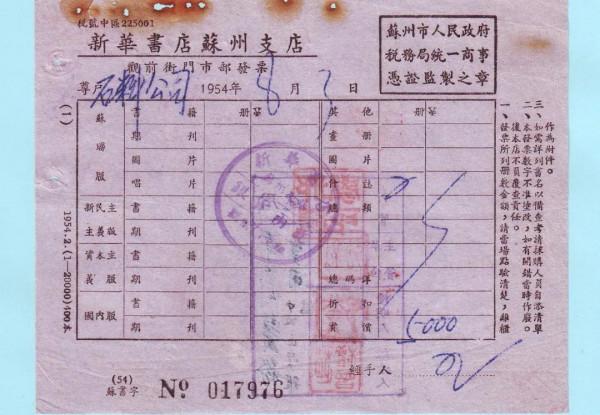 稅號中區225001
新華書店蘇州支店
觀前街門市部發票
蘇州市人民政府
稅務局統一商事
憑證監製之章
尊戶 石料公司 1954年 8月 3日
書籍 冊 其他 冊
蘇聯版 期刊 畫冊
圖片 圖片
唱片 什誌
新民主主義版 書籍 總類
期刊
資本主義版 書籍
期刊 總碼洋
國內版 書籍 折扣
期刊 實價 5000
經手人
(1)
1954.2.(1—20000)400本
(54)
蘇書字 No 017976
一、發票所列冊數金額,請當場點驗清楚,離櫃
後本店不負覆查責任。
二、本發票數字不準塗改,如有開錯當時作廢。
三、如需詳列書名以備查考請採購人員自添清單
作為附件。